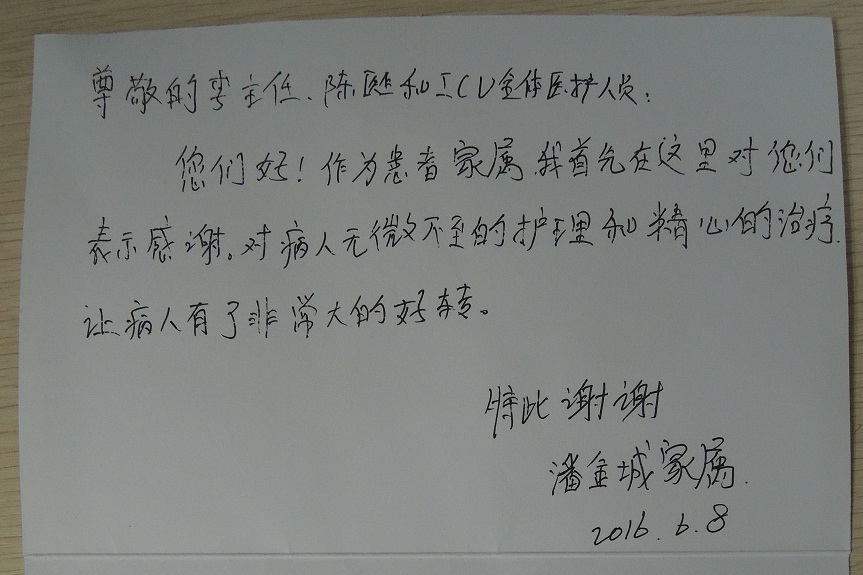 尊敬的李主任、陈医生和ICU全体医护人员:
您们好!作为患者家属,我首先在这里对您们
表示感谢。对病人无微不至的护理和精心的治疗.
让病人有了非常大的好转。
特此谢谢
潘金城家属.
2016.6.8